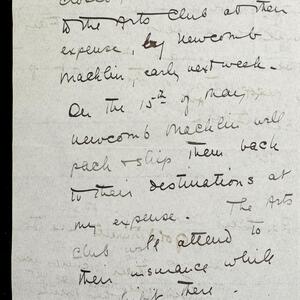 to the Arts Club at their
expense, by Newcomb
Macklin, early next week.
On the 15th of May,
Newcomb Macklin will
pack & ship them back
to their destinations at
my expense. The Arts
Club will attend to
their insurance while